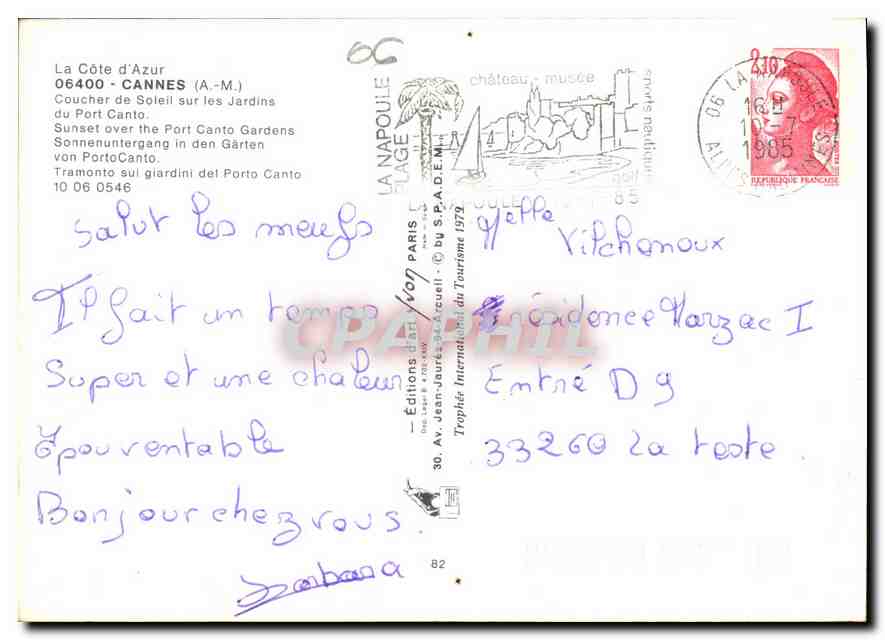 La Côte d'Azur
06400 - CANNES (A.-M.)
Coucher de Soleil sur les Jardins
du Port Canto.
Sunset over the Port Canto Gardens
Sonnenuntergang in den Gärten
von PortoCanto.
Tramonto sui giardini del Porto Canto
10 06 0546
06
LA NAPOULE
PLAGE
château - musée
sports nautiques
golf
85
2,10
06 LA
16 H
10 -7
1985
ALPES
REPUBLIQUE FRANÇAISE
Salut les meufs
Il fait un temps
Super et une chaleur
Épouventable
Bonjour chez vous.
Barbara
— Éditions d'art Yvon PARIS
30. Av. Jean-Jaurès-94-Arcueil - © by S.P.A.D.E.M.
Trophée International du Tourisme 1979
82
Melle
Vilchenoux
Résidence Marzac I
Entré D 9
33260 La teste
CPAPHIL